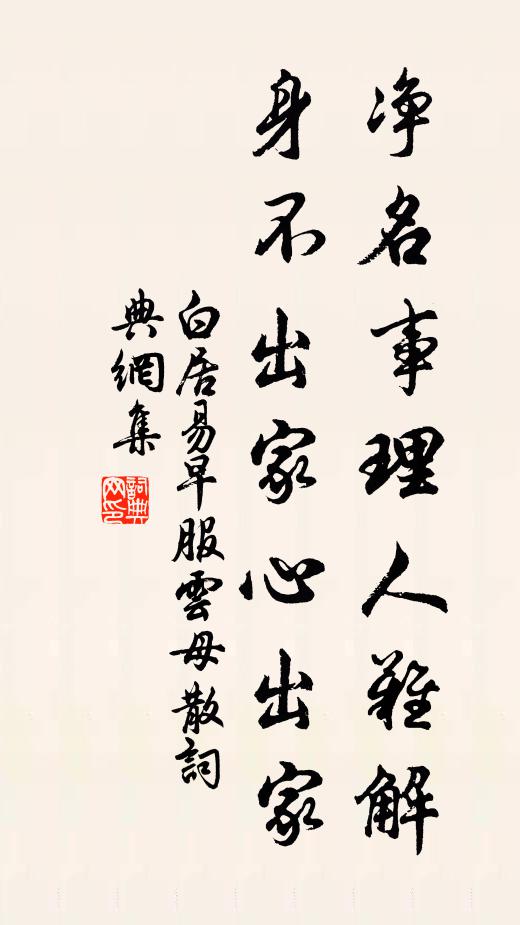 净名事理人難解
身不出家心出家
白居易早服雲母散詞
典網集
詞典网印